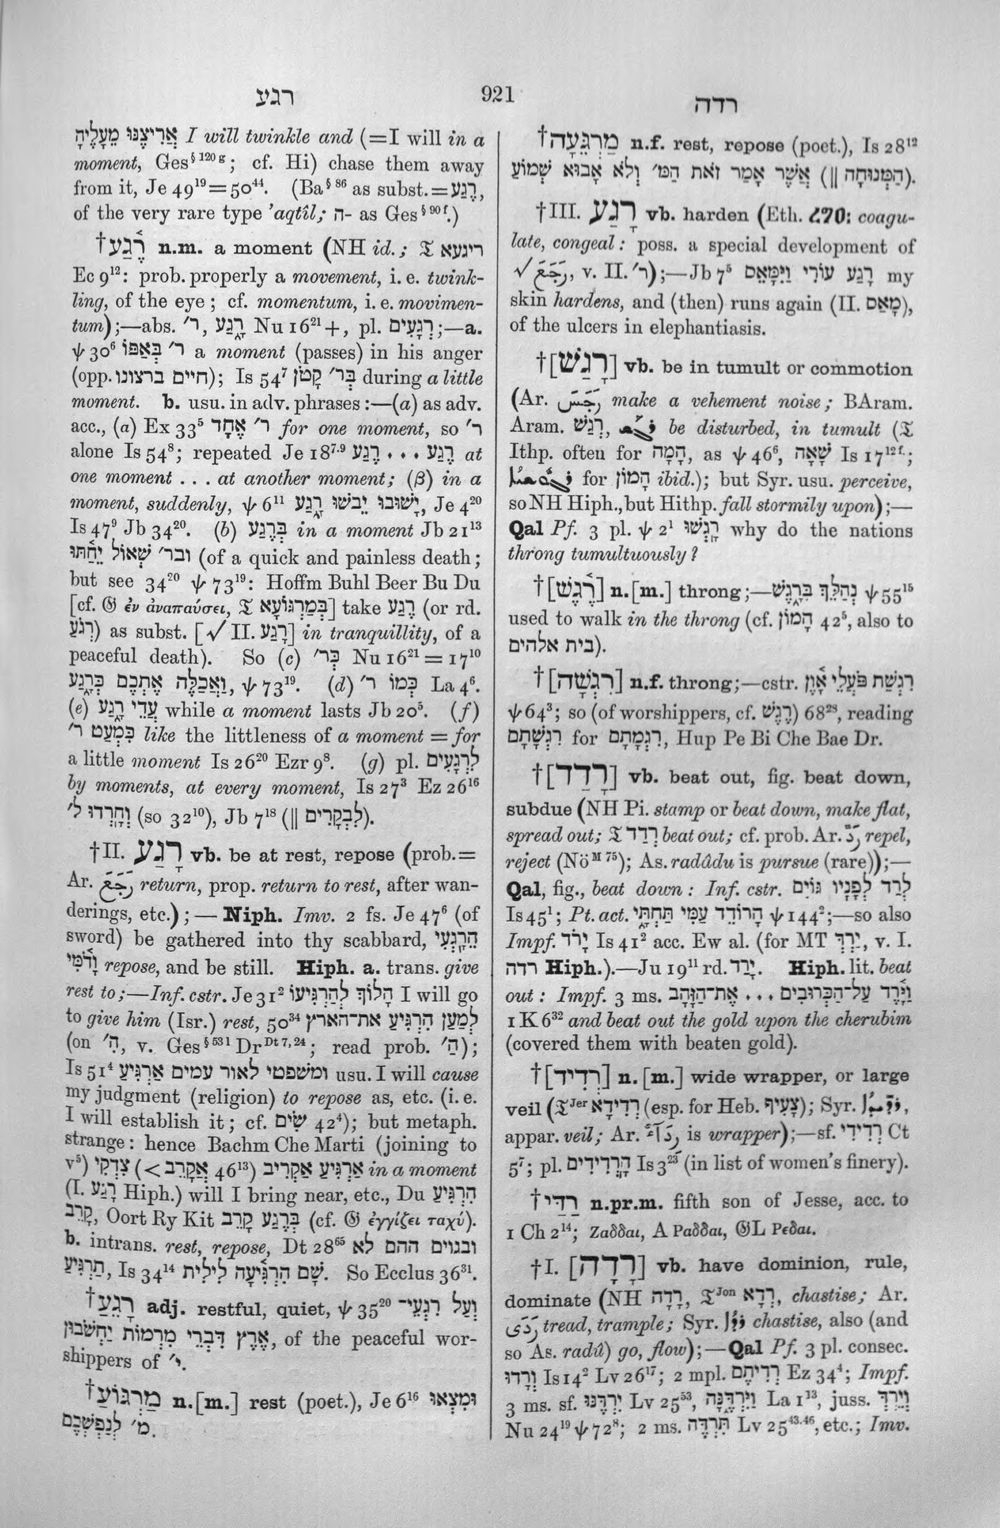 רגע
921
רדה
אֲרִיצֶנּוּ מֵעָלֶיהָ I will twinkle and (=I will in a
moment, Ges§ 120 g; cf. Hi) chase them away
from it, Je 49¹⁹=50⁴⁴. (Ba§ 86 as subst.=רֶגַע,
of the very rare type ’aqtîl; ה- as Ges§ 90 f.)
†רֶ֫גַע n.m. a moment (NH id.; 𝔗 ריגעא
Ec 9¹²: prob. properly a movement, i. e. twink-
ling, of the eye; cf. momentum, i. e. movimen-
tum);—abs. ר׳, רָגַע Nu 16²¹+, pl. רְגָעִים;—a.
ψ 30⁶ ר׳ בְּאַפּוֹ a moment (passes) in his anger
(opp. חיים ברצונו); Is 54⁷ בְּר׳ קָטֹן during a little
moment. b. usu. in adv. phrases:—(a) as adv.
acc., (α) Ex 33⁵ ר׳ אֶחָד for one moment, so ר׳
alone Is 54⁸; repeated Je 18⁷·⁹ רֶגַע . . . רֶגַע at
one moment . . . at another moment; (β) in a
moment, suddenly, ψ 6¹¹ יָשֻׁובוּ יֵבשׁוּ רָגַע, Je 4²⁰
Is 47⁹ Jb 34²⁰. (b) בְּרֶגַע in a moment Jb 21¹³
ובר׳ שְׁאוֹל יֵחָתּוּ (of a quick and painless death;
but see 34²⁰ ψ 73¹⁹: Hoffm Buhl Beer Bu Du
[cf. 𝔊 ἐν ἀναπαύσει, 𝔗 בְּמַרְגּוֹעָא] take רֶגַע (or rd.
רֹגַע) as subst. [√ II. רָגַע] in tranquillity, of a
peaceful death). So (c) כְּר׳ Nu 16²¹=17¹⁰
וַאֲכַלֶּה אֶתְכֶם כְּרָגַע, ψ 73¹⁹. (d) כְּמוֹ ר׳ La 4⁶.
(e) עֲדֵי רָגַע while a moment lasts Jb 20⁵. (f)
כִּמְעַט ר׳ like the littleness of a moment = for
a little moment Is 26²⁰ Ezr 9⁸. (g) pl. לִרְגָעִים
by moments, at every moment, Is 27³ Ez 26¹⁶
וְחָרְדוּ ל׳ (so 32¹⁰), Jb 7¹⁸ (|| לִבְקָרִים).
†II. רָגַע vb. be at rest, repose (prob.=
Ar. رَجَعَ return, prop. return to rest, after wan-
derings, etc.);—Niph. Imv. 2 fs. Je 47⁶ (of
sword) be gathered into thy scabbard, הֵרָגְעִי
וָדֹ֫מִּי repose, and be still. Hiph. a. trans. give
rest to;—Inf. cstr. Je 31² הָלוֹךְ לְהַרְגִּיעוֹ I will go
to give him (Isr.) rest, 50³⁴ לְמַעַן הִרְגִּיעַ אֶת־הארץ
(on הִ׳, v. Ges§ 53 l Dr Dt 7, 24; read prob. הַ׳);
Is 51⁴ ומשפטי לאור עמים אַרְגִּיעַ usu. I will cause
my judgment (religion) to repose as, etc. (i. e.
I will establish it; cf. שִׂים 42⁴); but metaph.
strange: hence Bachm Che Marti (joining to
v⁵) אַרְגִּיעַ אַקְרִיב צִדְקִי (< אֲקָרֵב 46¹³) in a moment
(I. רָגַע Hiph.) will I bring near, etc., Du הִרְגִּיעַ
קָרֵב, Oort Ry Kit בְּרֶגַע קָרַב (cf. 𝔊 ἐγγίζει ταχύ).
b. intrans. rest, repose, Dt 28⁶⁵ ובגוים ההם לֹא
תַרְגִּיעַ, Is 34¹⁴ שָׁם הִרְגִּיעָה לִילִית. So Ecclus 36³¹.
†רָגֵעַ adj. restful, quiet, ψ 35²⁰ וְעַל רִגְעֵי־
אֶרֶץ דִּבְרֵי מִרְמוֹת יַחֲשֹׁבוּן, of the peaceful wor-
shippers of י׳.
†מַרְגּוֹעַ n.[m.] rest (poet.), Je 6¹⁶ וּמִצְאוּ
מ׳ לְנַפְשְׁכֶם.
†מַרְגֵּעָה n.f. rest, repose (poet.), Is 28¹²
אֲשֶׁר אָמַר זֹאת הַמּ׳ וְלֹא אָבוּא שְׁמוֹעַ (|| הַמְּנוּחָה).
†III. רָגַע vb. harden (Eth. coagu-
late, congeal: poss. a special development of
√ رَجَعَ, v. II. ר׳);—Jb 7⁵ עוֹרִי רָגַע וַיִּמָּאֵס my
skin hardens, and (then) runs again (II. מָאַס),
of the ulcers in elephantiasis.
†[רָגַשׁ] vb. be in tumult or commotion
(Ar. رَجَسَ make a vehement noise; BAram.
Aram. רְגַשׁ, be disturbed, in tumult (𝔗
Ithp. often for הָמָה, as ψ 46⁶, שָׁאָה Is 17¹² ᶠ·;
for הָמוֹן ibid.); but Syr. usu. perceive,
so NH Hiph., but Hithp. fall stormily upon);—
Qal Pf. 3 pl. ψ 2¹ רָגְשׁוּ why do the nations
throng tumultuously?
†[רֶ֫גֶשׁ] n.[m.] throng;—נְהַלֵּךְ בְּרָגֶשׁ ψ 55¹⁵
used to walk in the throng (cf. הָמוֹן 42⁵, also to
בית אלהים).
†[רִגְשָׁה] n.f. throng;—cstr. רִגְשַׁת פֹּעֲלֵי אָוֶן
ψ 64³; so (of worshippers, cf. רֶגֶשׁ) 68²⁸, reading
רִגְשָׁתָם for רִגְמָתָם, Hup Pe Bi Che Bae Dr.
†[רָדַד] vb. beat out, fig. beat down,
subdue (NH Pi. stamp or beat down, make flat,
spread out; 𝔗 רְדַד beat out; cf. prob. Ar. رَدَّ repel,
reject (Nö M 75); As. radâdu is pursue (rare));—
Qal, fig., beat down: Inf. cstr. לְרַד לְפָנָיו גּוֹיִם
Is 45¹; Pt. act. הָרוֹדֵד עַמִּי תַחְתָּי ψ 144²;—so also
Impf. יָרֹד Is 41² acc. Ew al. (for MT יַרְדְּ, v. I.
רדה Hiph.).—Ju 19¹¹ rd. יָרַד. Hiph. lit. beat
out: Impf. 3 ms. וַיָּרֶד עַל־הַכְּרוּבִים . . . אֶת־הַזָּהָב
1 K 6³² and beat out the gold upon the cherubim
(covered them with beaten gold).
†[רְדִיד] n.[m.] wide wrapper, or large
veil (𝔗Jer רְדִידָא (esp. for Heb. צָעִיף); Syr.
appar. veil; Ar. is wrapper);—sf. רְדִידִי Ct
5⁷; pl. הָרְדִידִים Is 3²³ (in list of women’s finery).
†רַדַּי n.pr.m. fifth son of Jesse, acc. to
1 Ch 2¹⁴; Ζαδδαι, A Ραδδαι, 𝔊L Ρεδαι.
†I. [רָדָה] vb. have dominion, rule,
dominate (NH רָדָה, 𝔗Jon רְדָא, chastise; Ar.
رَدَى tread, trample; Syr. chastise, also (and
so As. radû) go, flow);—Qal Pf. 3 pl. consec.
וְרָדוּ Is 14² Lv 26¹⁷; 2 mpl. רְדִיתֶם Ez 34⁴; Impf.
3 ms. sf. יִרְדֶּנּוּ Lv 25⁵³, וַיִּרְדֶּנָּה La 1¹³, juss. וְיֵרְדְּ
Nu 24¹⁹ ψ 72⁸; 2 ms. תִּרְדֶּה Lv 25⁴³·⁴⁶, etc.; Imv.